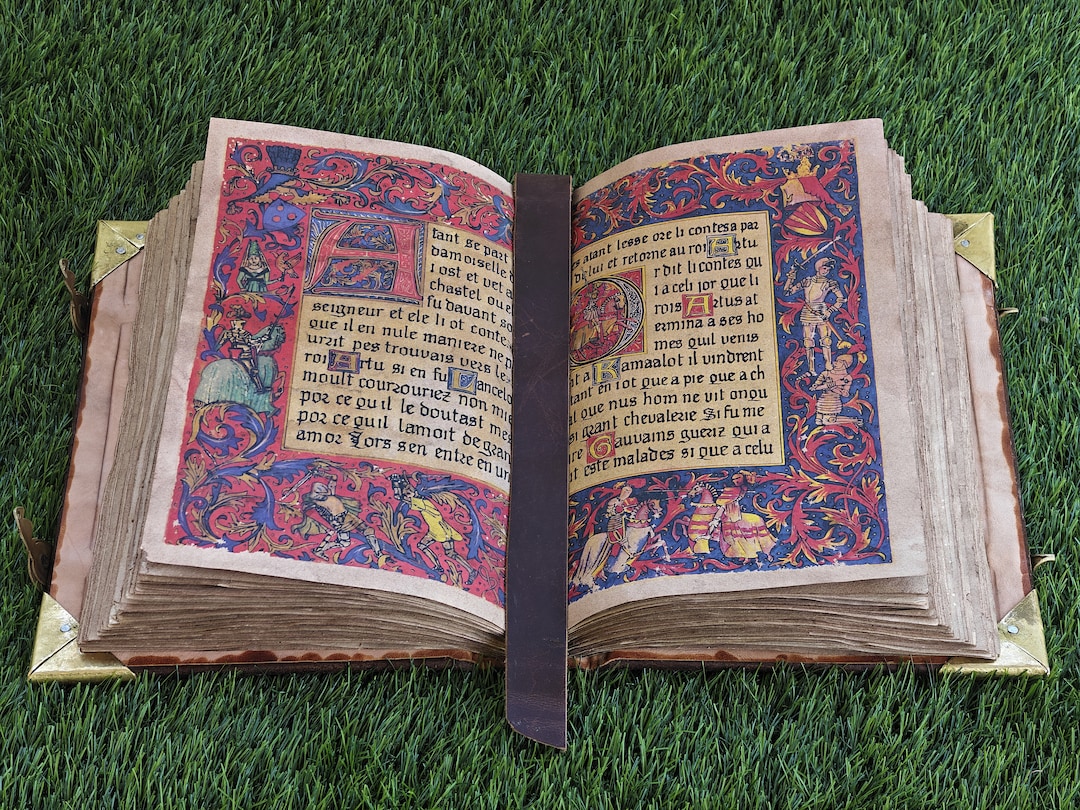 Atant se part
damoiselle
iost et vet a
chastel oue
fu davant so
seigneur et ele li ot conte
que il en nule maniere ne p
urrit pes trouvais vers le
roi Artu si en fu Lancelo
moult courzouriez non mie
por ce qu il le doutast mes
por ce quil lamoit de gran
amor Lors sen entre en un
es atant lesse ore li contes a par
de lui et retorne au roi Artu
Or dit li contes qu
i a celi jor que li
rois Artus at
ermina a ses ho
mes quil venis
nt a Kamaalot il vindrent
tant en i ot que a pie que a ch
l que nus hom ne vit onqu
si grant chevalerie Si fu me
re Gauvains gueriz qui a
t este malades si que a celu